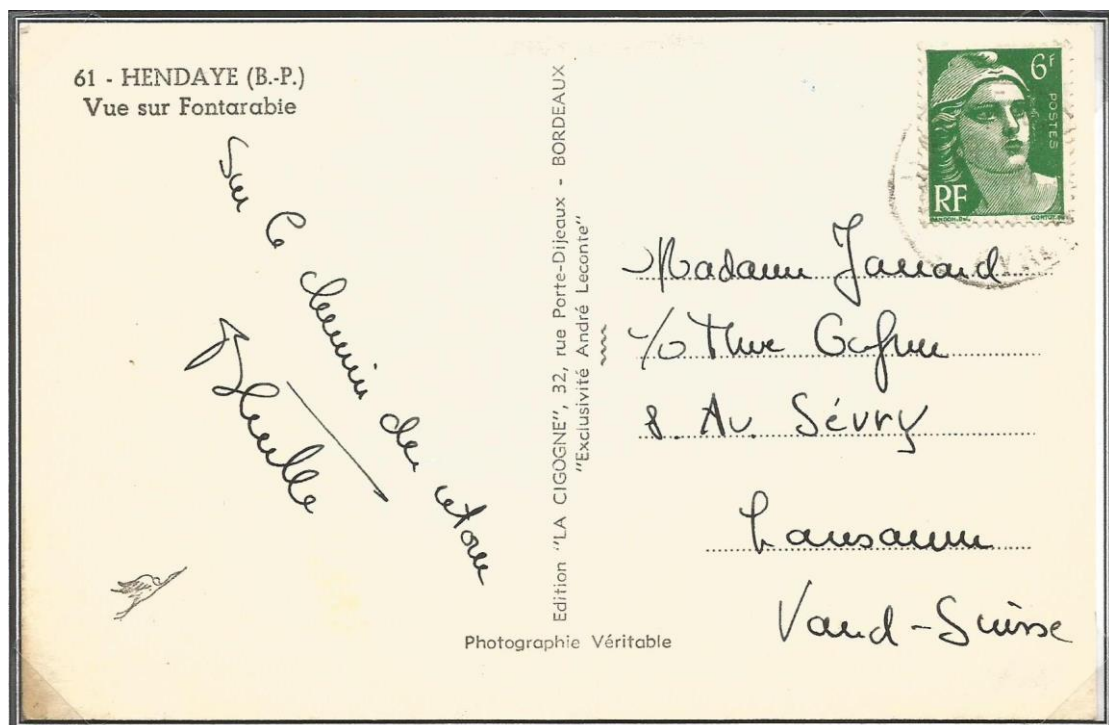 61 - HENDAYE (B.-P.)
Vue sur Fontarabie
Sur le chemin du retour
Edition "LA CIGOGNE", 32, rue Porte-Dijeaux - BORDEAUX
"Exclusivité André Leconte"
Photographie Véritable
6F
POSTES
RF
GANDON.DEL.
Madame
c/o Mme
8. Av. Sévry
Lausanne
Vaud-Suisse